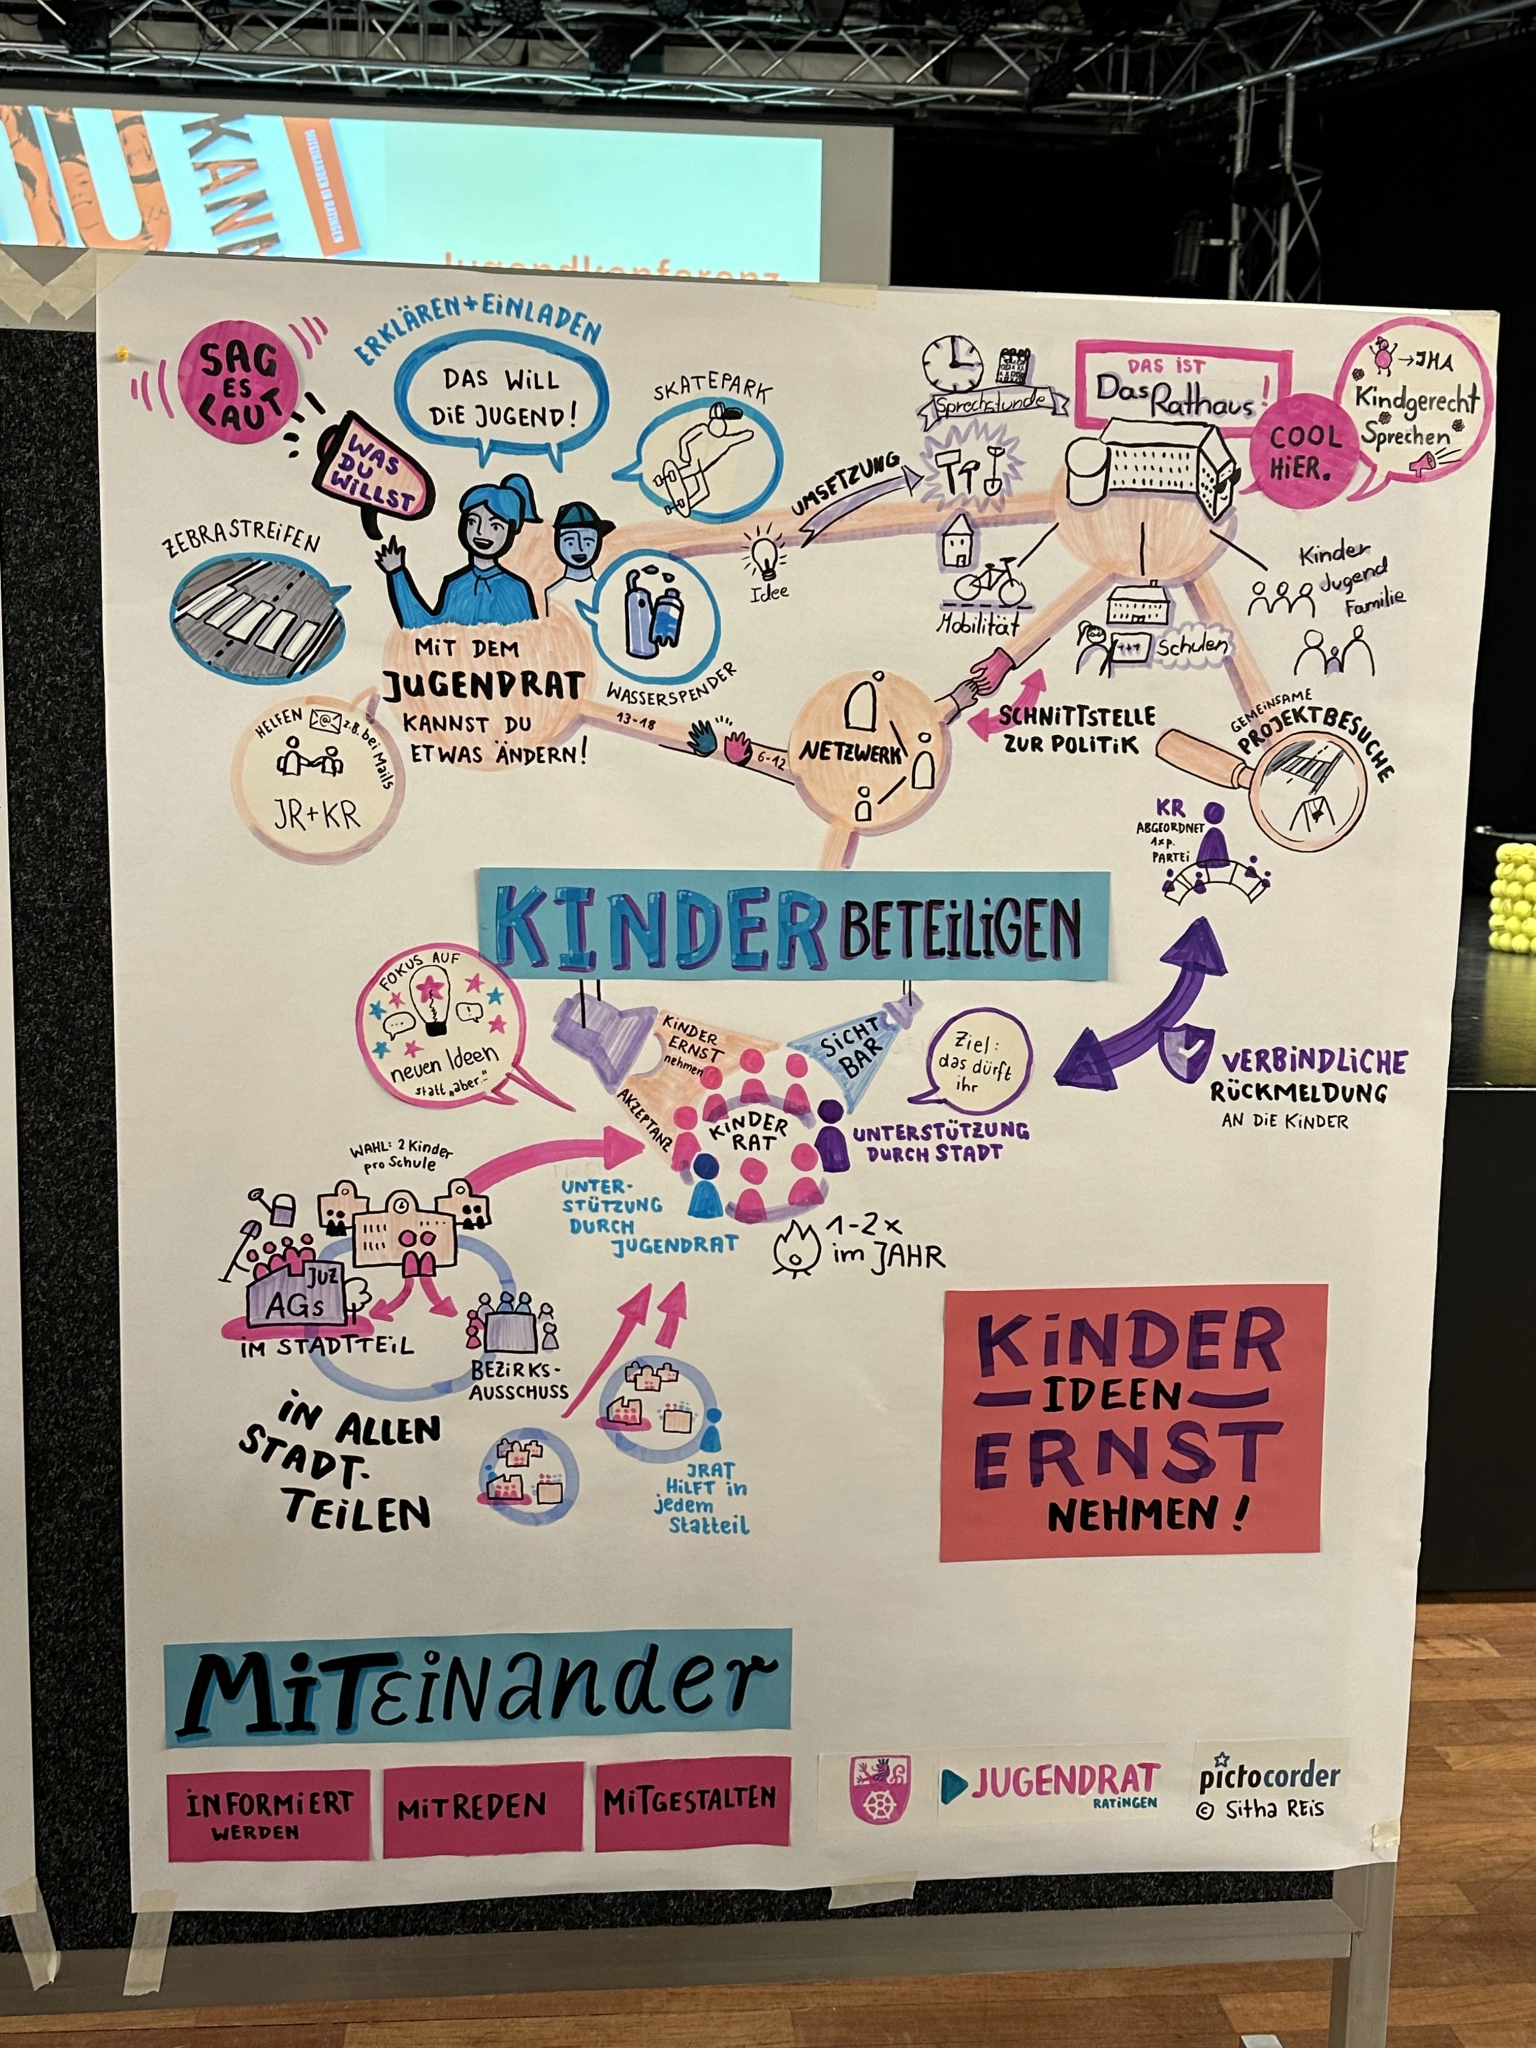 KANN
MITEINANDER IN RATINGEN
Jugendkonferenz
SAG
ES
LAUT
WAS
DU
WILLST
ERKLÄREN+EINLADEN
DAS WILL
DIE JUGEND!
SKATEPARK
ZEBRASTREIFEN
MIT DEM
JUGENDRAT
KANNST DU
ETWAS ÄNDERN!
WASSERSPENDER
HELFEN
z.B. bei Mails
JR+KR
13-18
6-12
NETZWERK
Idee
UMSETZUNG
Sprechstunde
DAS IST
Das Rathaus!
COOL
HIER.
→JHA
Kindgerecht
Sprechen
Mobilität
1+1
Schulen
Kinder
Jugend
Familie
SCHNITTSTELLE
ZUR POLITIK
GEMEINSAME
PROJEKTBESUCHE
KR
ABGEORDNET
1x p.
PARTEI
KINDER BETEILIGEN
FOKUS AUF
neuen Ideen
statt „aber“
KINDER
ERNST
nehmen
AKZEPTANZ
SICHT
BAR
Ziel:
das dürft
ihr
KINDER
RAT
UNTERSTÜTZUNG
DURCH STADT
VERBINDLICHE
RÜCKMELDUNG
AN DIE KINDER
WAHL: 2 Kinder
pro Schule
UNTER-
STÜTZUNG
DURCH
JUGENDRAT
1-2x
im JAHR
JUZ
AGs
IM STADTTEIL
BEZIRKS-
AUSSCHUSS
IN ALLEN
STADT-
TEILEN
JRAT
HILFT in
jedem
Statteil
KINDER
IDEEN
ERNST
NEHMEN!
MITEINander
INFORMIERT
WERDEN
MITREDEN
MITGESTALTEN
JUGENDRAT
RATINGEN
pictocorder
© Sitha REis